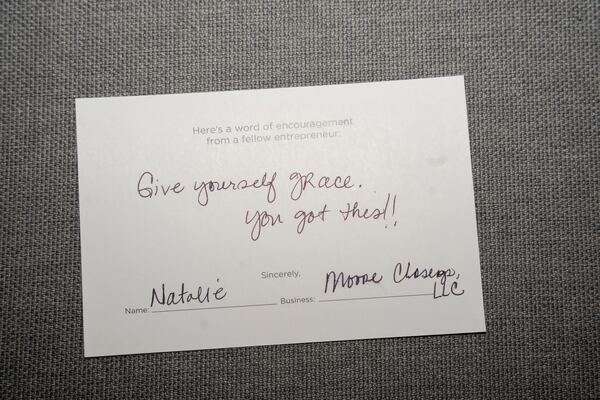 Here's a word of encouragement
from a fellow entrepreneur:
Give yourself grace.
You got this!!
Sincerely,
Name: Natalie Business: Moore Closings,
LLC